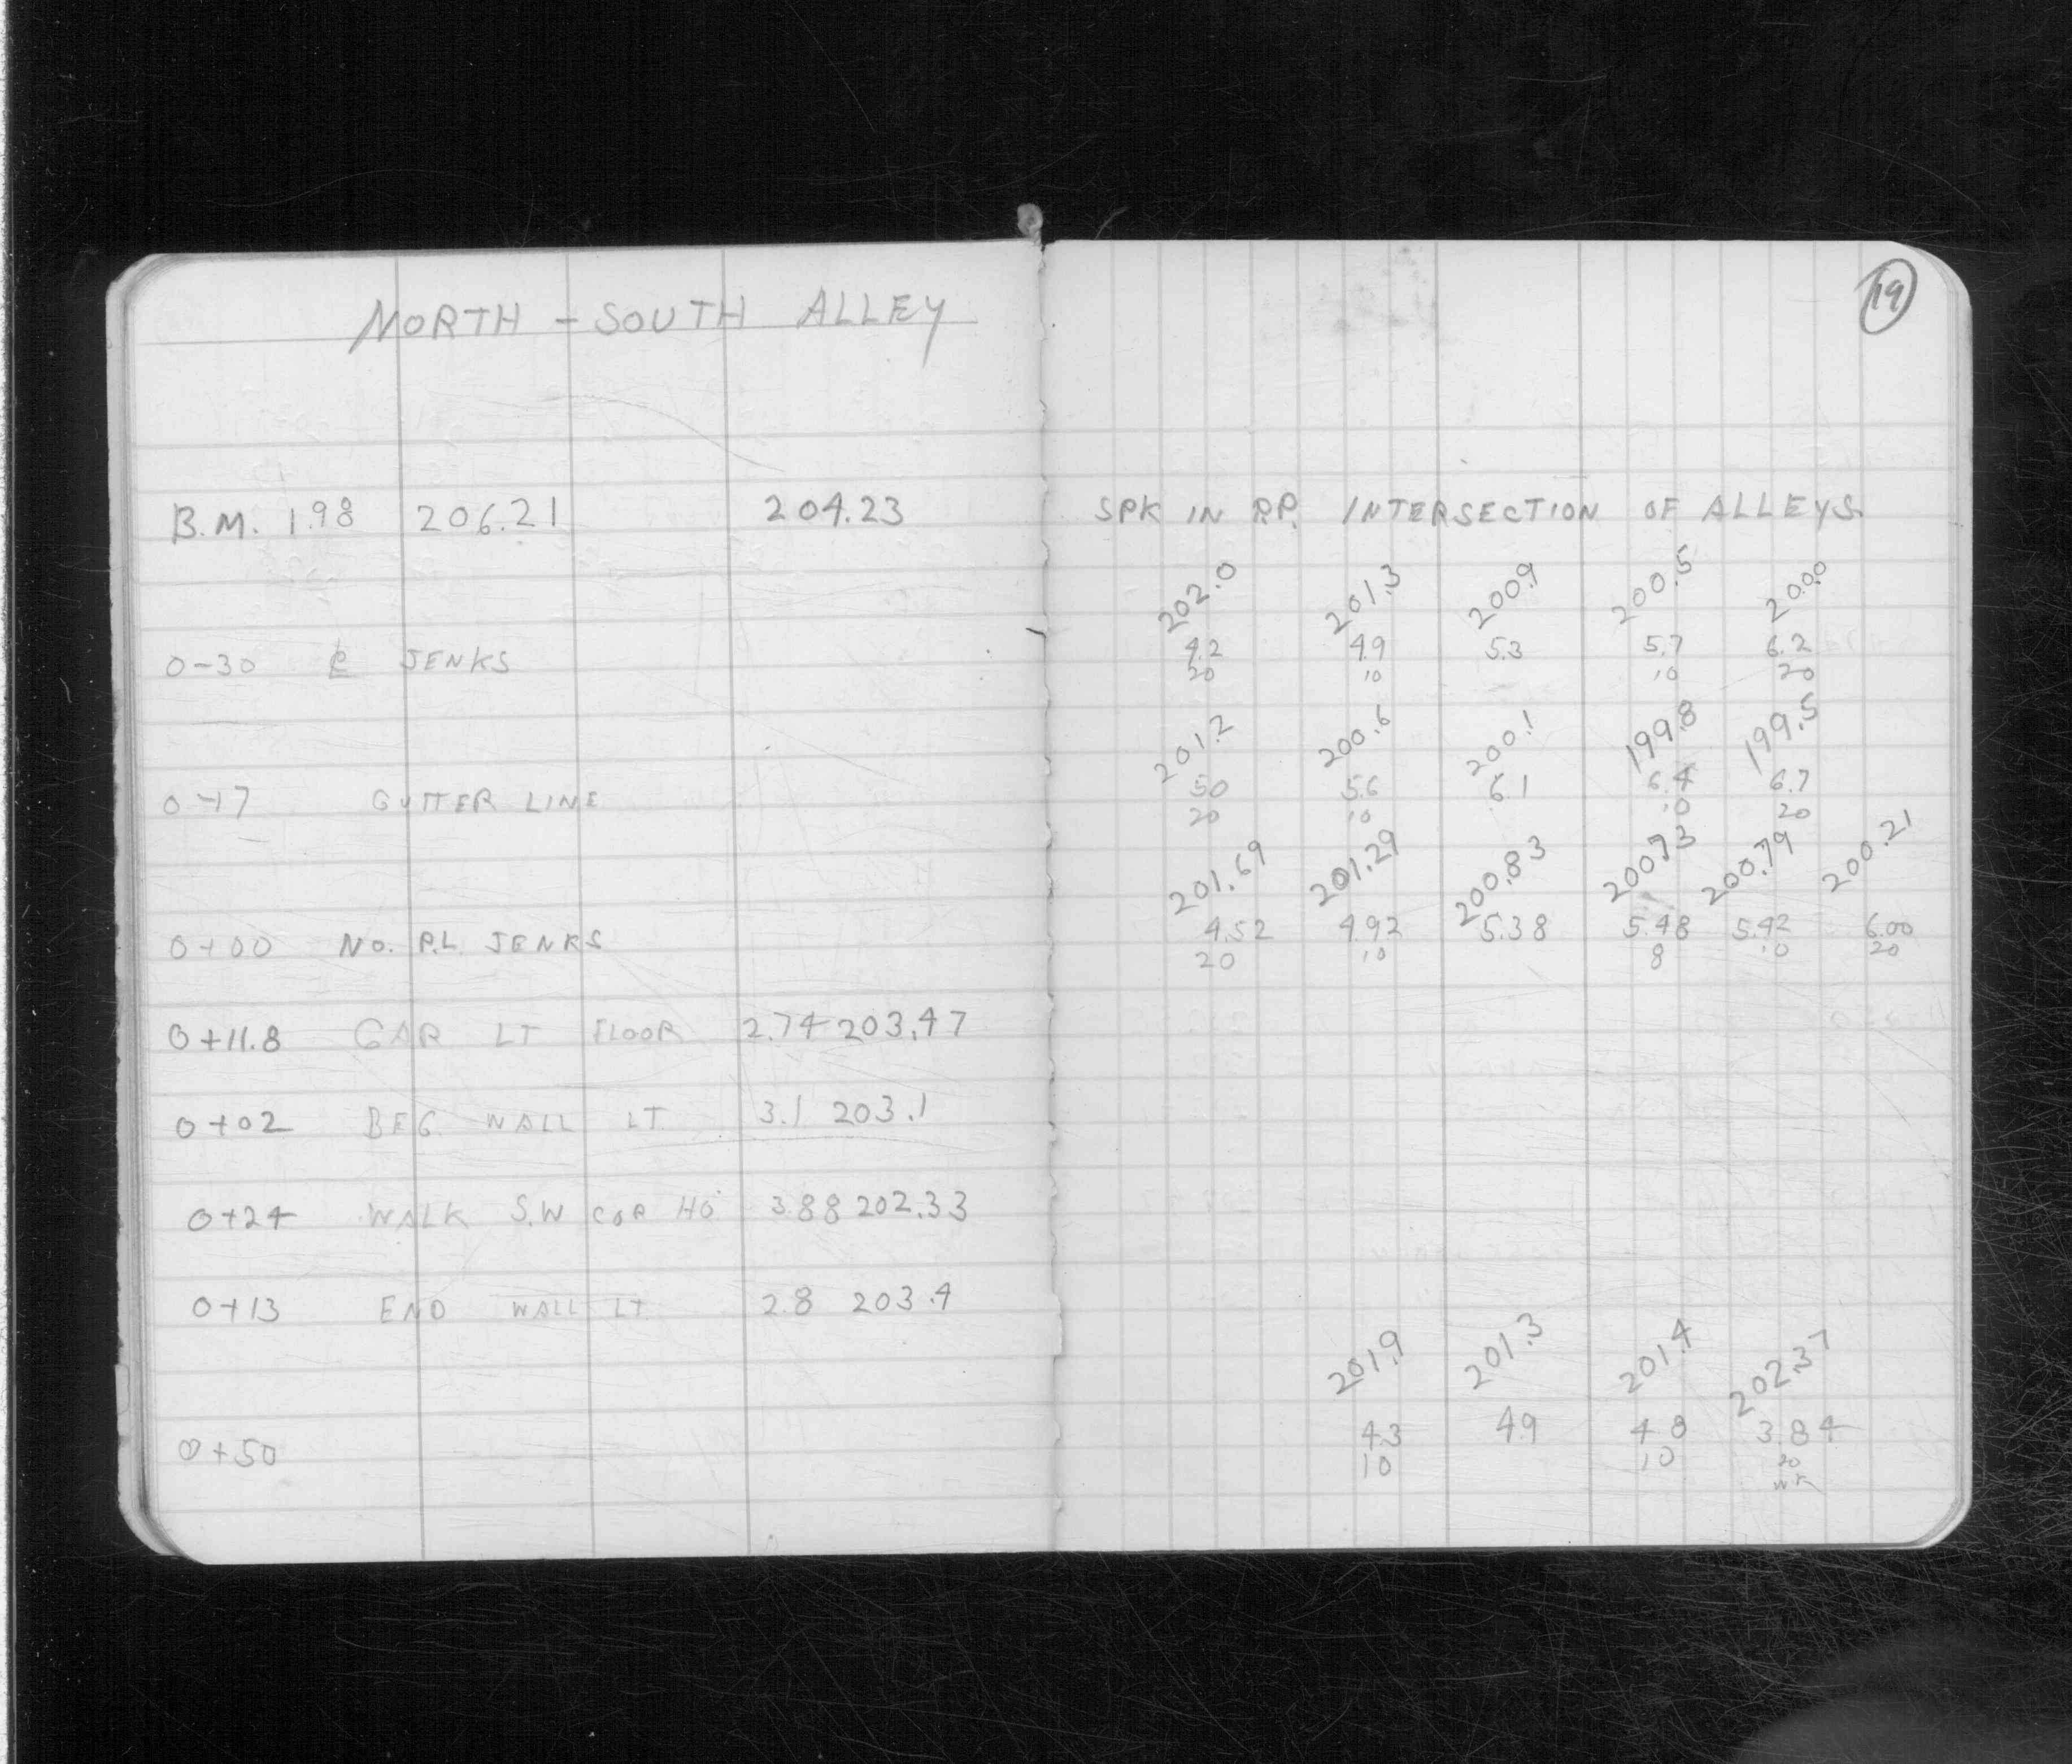 NORTH - SOUTH ALLEY
19
B.M. 1.98 206.21 204.23 SPK IN P.P. INTERSECTION OF ALLEYS.
202.0 201.3 200.9 200.5 200.0
0-30 ℄ JENKS 4.2 4.9 5.3 5.7 6.2
20 10 10 20
201.2 200.6 200.1 199.8 199.5
0-17 GUTTER LINE 5.0 5.6 6.1 6.4 6.7
20 10 10 20
201.69 201.29 200.83 200.73 200.79 200.21
0+00 NO. P.L. JENKS 4.52 4.92 5.38 5.48 5.42 6.00
20 10 8 10 20
0+11.8 GAR LT FLOOR 2.74 203.47
0+02 BEG. WALL LT 3.1 203.1
0+24 WALK S.W COR HO 3.88 202.33
0+13 END WALL LT 2.8 203.4
201.9 201.3 201.4 202.37
0+50 4.3 4.9 4.8 3.84
10 10 20
WK